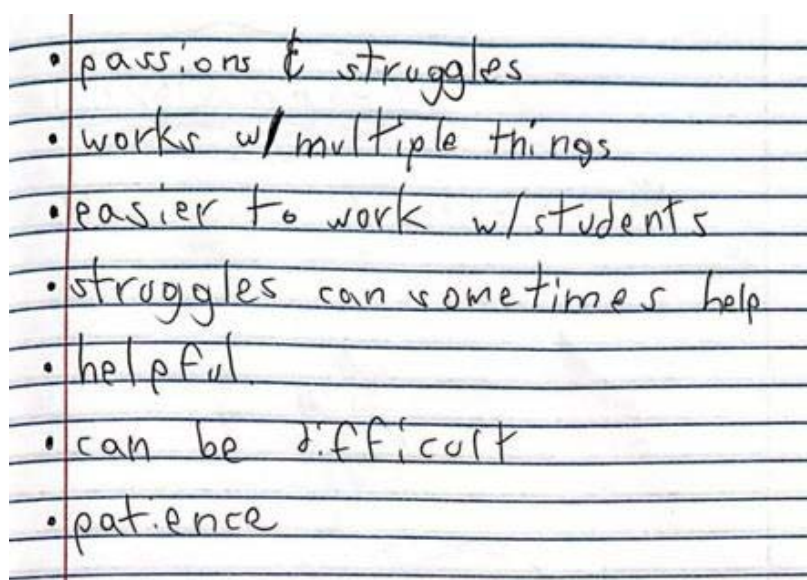 • passions & struggles
• works w/ multiple things
• easier to work w/ students
• struggles can sometimes help
• helpful.
• can be difficult
• patience